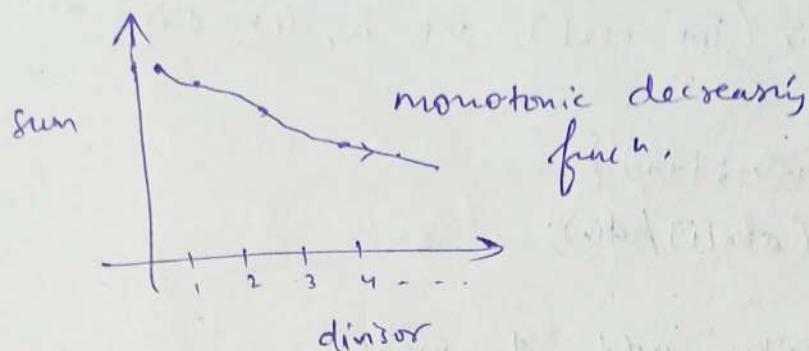 sum
monotonic decreasing
funcⁿ.
1 2 3 4 - - -.
divisor